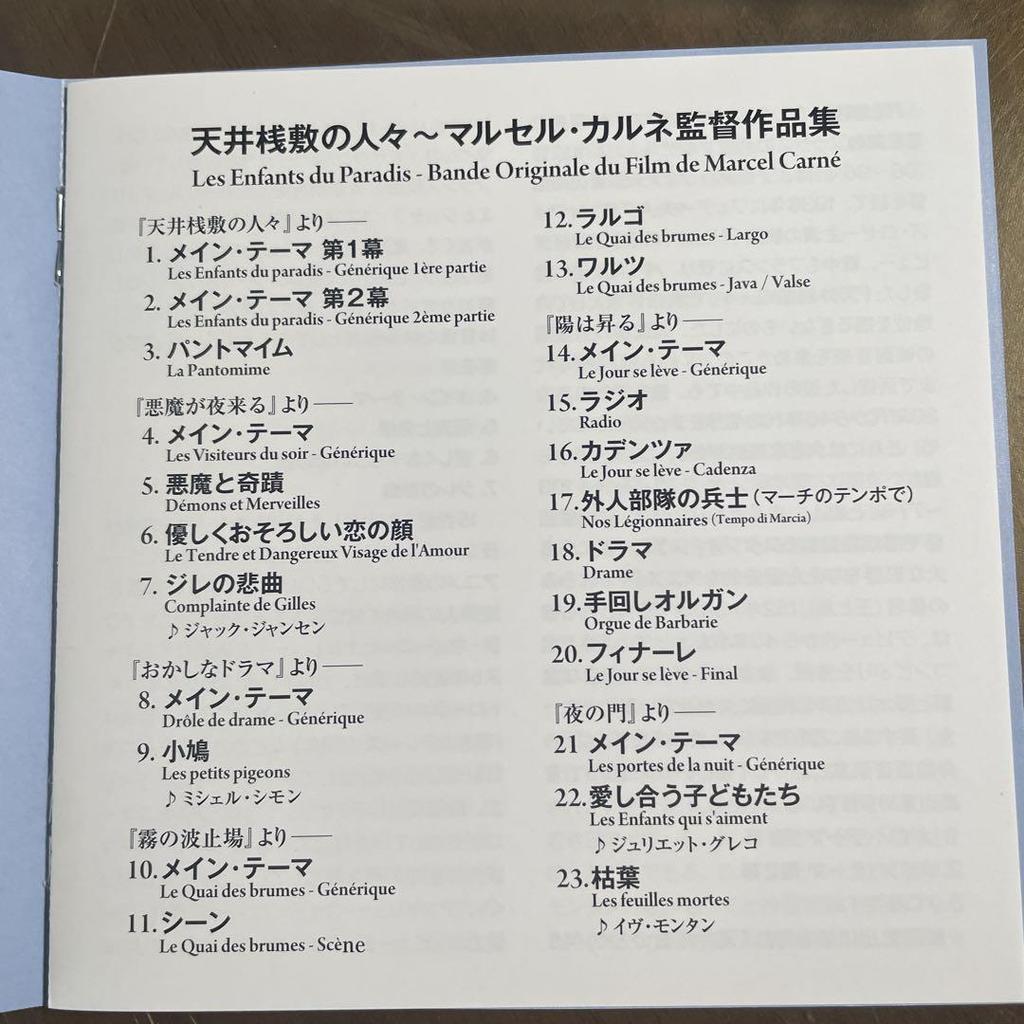 天井桟敷の人々～マルセル・カルネ監督作品集
Les Enfants du Paradis - Bande Originale du Film de Marcel Carné
『天井桟敷の人々』より——
1. メイン・テーマ 第1幕
Les Enfants du paradis - Générique 1ère partie
2. メイン・テーマ 第2幕
Les Enfants du paradis - Générique 2ème partie
3. パントマイム
La Pantomime
『悪魔が夜来る』より——
4. メイン・テーマ
Les Visiteurs du soir - Générique
5. 悪魔と奇蹟
Démons et Merveilles
6. 優しくおそろしい恋の顔
Le Tendre et Dangereux Visage de l'Amour
7. ジレの悲曲
Complainte de Gilles
♪ジャック・ジャンセン
『おかしなドラマ』より——
8. メイン・テーマ
Drôle de drame - Générique
9. 小鳩
Les petits pigeons
♪ミシェル・シモン
『霧の波止場』より——
10. メイン・テーマ
Le Quai des brumes - Générique
11. シーン
Le Quai des brumes - Scène
12. ラルゴ
Le Quai des brumes - Largo
13. ワルツ
Le Quai des brumes - Java / Valse
『陽は昇る』より——
14. メイン・テーマ
Le Jour se lève - Générique
15. ラジオ
Radio
16. カデンツァ
Le Jour se lève - Cadenza
17. 外人部隊の兵士（マーチのテンポで）
Nos Légionnaires (Tempo di Marcia)
18. ドラマ
Drame
19. 手回しオルガン
Orgue de Barbarie
20. フィナーレ
Le Jour se lève - Final
『夜の門』より——
21 メイン・テーマ
Les portes de la nuit - Générique
22. 愛し合う子どもたち
Les Enfants qui s'aiment
♪ジュリエット・グレコ
23. 枯葉
Les feuilles mortes
♪イヴ・モンタン